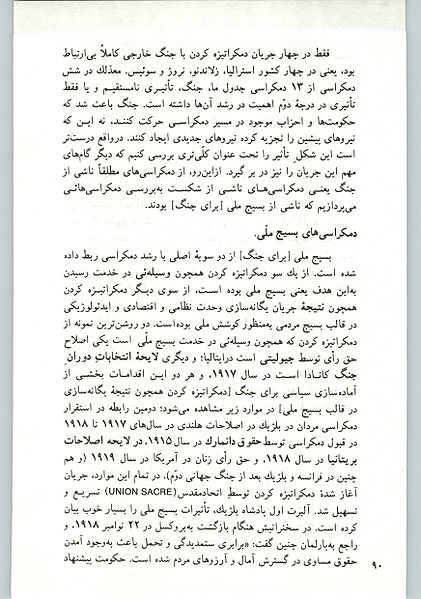 فقط در چهار جریان دمکراتیزه کردن یا جنگ خارجی کاملاً بی‌ارتباط
بود، یعنی در چهار کشور استرالیا، زلاندنو، نروژ و سوئیس. معذلك در شش
دمکراسی از ۱۳ دمکراسی جدول ما، جنگ، تأثیری نامستقیم و یا فقط
تأثیری در درجهٔ دوّم اهمیت در رشد آن‌ها داشته است. جنگ باعث شد که
حکومت‌ها و احزاب موجود در مسیر دمکراسی حرکت کنند، نه این که
نیروهای پیشین را تجزیه کرده نیروهای جدیدی ایجاد کنند. درواقع درست‌تر
است این شکل تأثیر را تحت عنوان کلّی‌تری بررسی کنیم که دیگر گام‌های
مهم این جریان را نیز در بر گیرد. ازاین‌رو، از دمکراسی‌های مطلقاً ناشی از
جنگ یعنی دمکراسی‌های ناشی از شکست به‌بررسی دمکراسی‌هائی
می‌پردازیم که ناشی از بسیج ملی [برای جنگ] بودند.
دمکراسی‌های بسیج ملّی.
بسیج ملی [برای جنگ] از دو سویهٔ اصلی با رشد دمکراسی ربط داده
شده است. از یك سو دمکراتیزه کردن همچون وسیله‌ئی در خدمت رسیدن
به‌این هدف یعنی بسیج ملی بوده است، از سوی دیگر دمکراتیزه کردن
همچون نتیجهٔ جریان یگانه‌سازی وحدت نظامی و اقتصادی و ایدئولوژیکی
در قالب بسیج مردمی به‌منظور کوشش ملی بوده‌است. دو روشن‌ترین نمونه از
دمکراتیزه کردن که همچون وسیله‌ئی در خدمت بسیج ملّی است یکی اصلاح
حق رأی توسط جیولیتی است درایتالیا؛ و دیگری لایحهٔ انتخاباتِ دورانِ
جنگ کانادا است در سال ۱۹۱۷، و هر دو این اقدامات بخشی از
آماده‌سازی سیاسی برای جنگ [دمکراتیزه کردن همچون نتیجهٔ یگانه‌سازی
در قالب بسیج ملی] در موارد زیر مشاهده می‌شود؛ دومین رابطه در استقرار
دمکراسی مردان در بلژیك در اصلاحات هلندی در سال‌های ۱۹۱۷ تا ۱۹۱۸
در قبول دمکراسی توسط حقوق دانمارك در سال ۱۹۱۵، در لایحه اصلاحات
بریتانیا در سال ۱۹۱۸، و حق رأی زنان در آمریکا در سال ۱۹۱۹ (و هم
چنین در فرانسه و بلژیك بعد از جنگ جهانی دوّم). در تمام این موارد، جریان
آغاز شدهٔ دمکراتیزه کردن توسط اتحادمقدس (UNION SACRE) تسریع و
تسهیل شد. آلبرت اول پادشاه بلژیك، تأثیرات بسیج ملی را بسیار خوب بیان
کرده است. در سخنرانیش هنگام بازگشت به‌بروکسل در ۲۲ نوامبر ۱۹۱۸، و
راجع به‌پارلمان چنین گفت: «برابری ستمدیدگی و تحمل باعث به‌وجود آمدن
حقوق مساوی در گسترش آمال و آرزوهای مردم شده است. حکومت پیشنهاد
۹۰